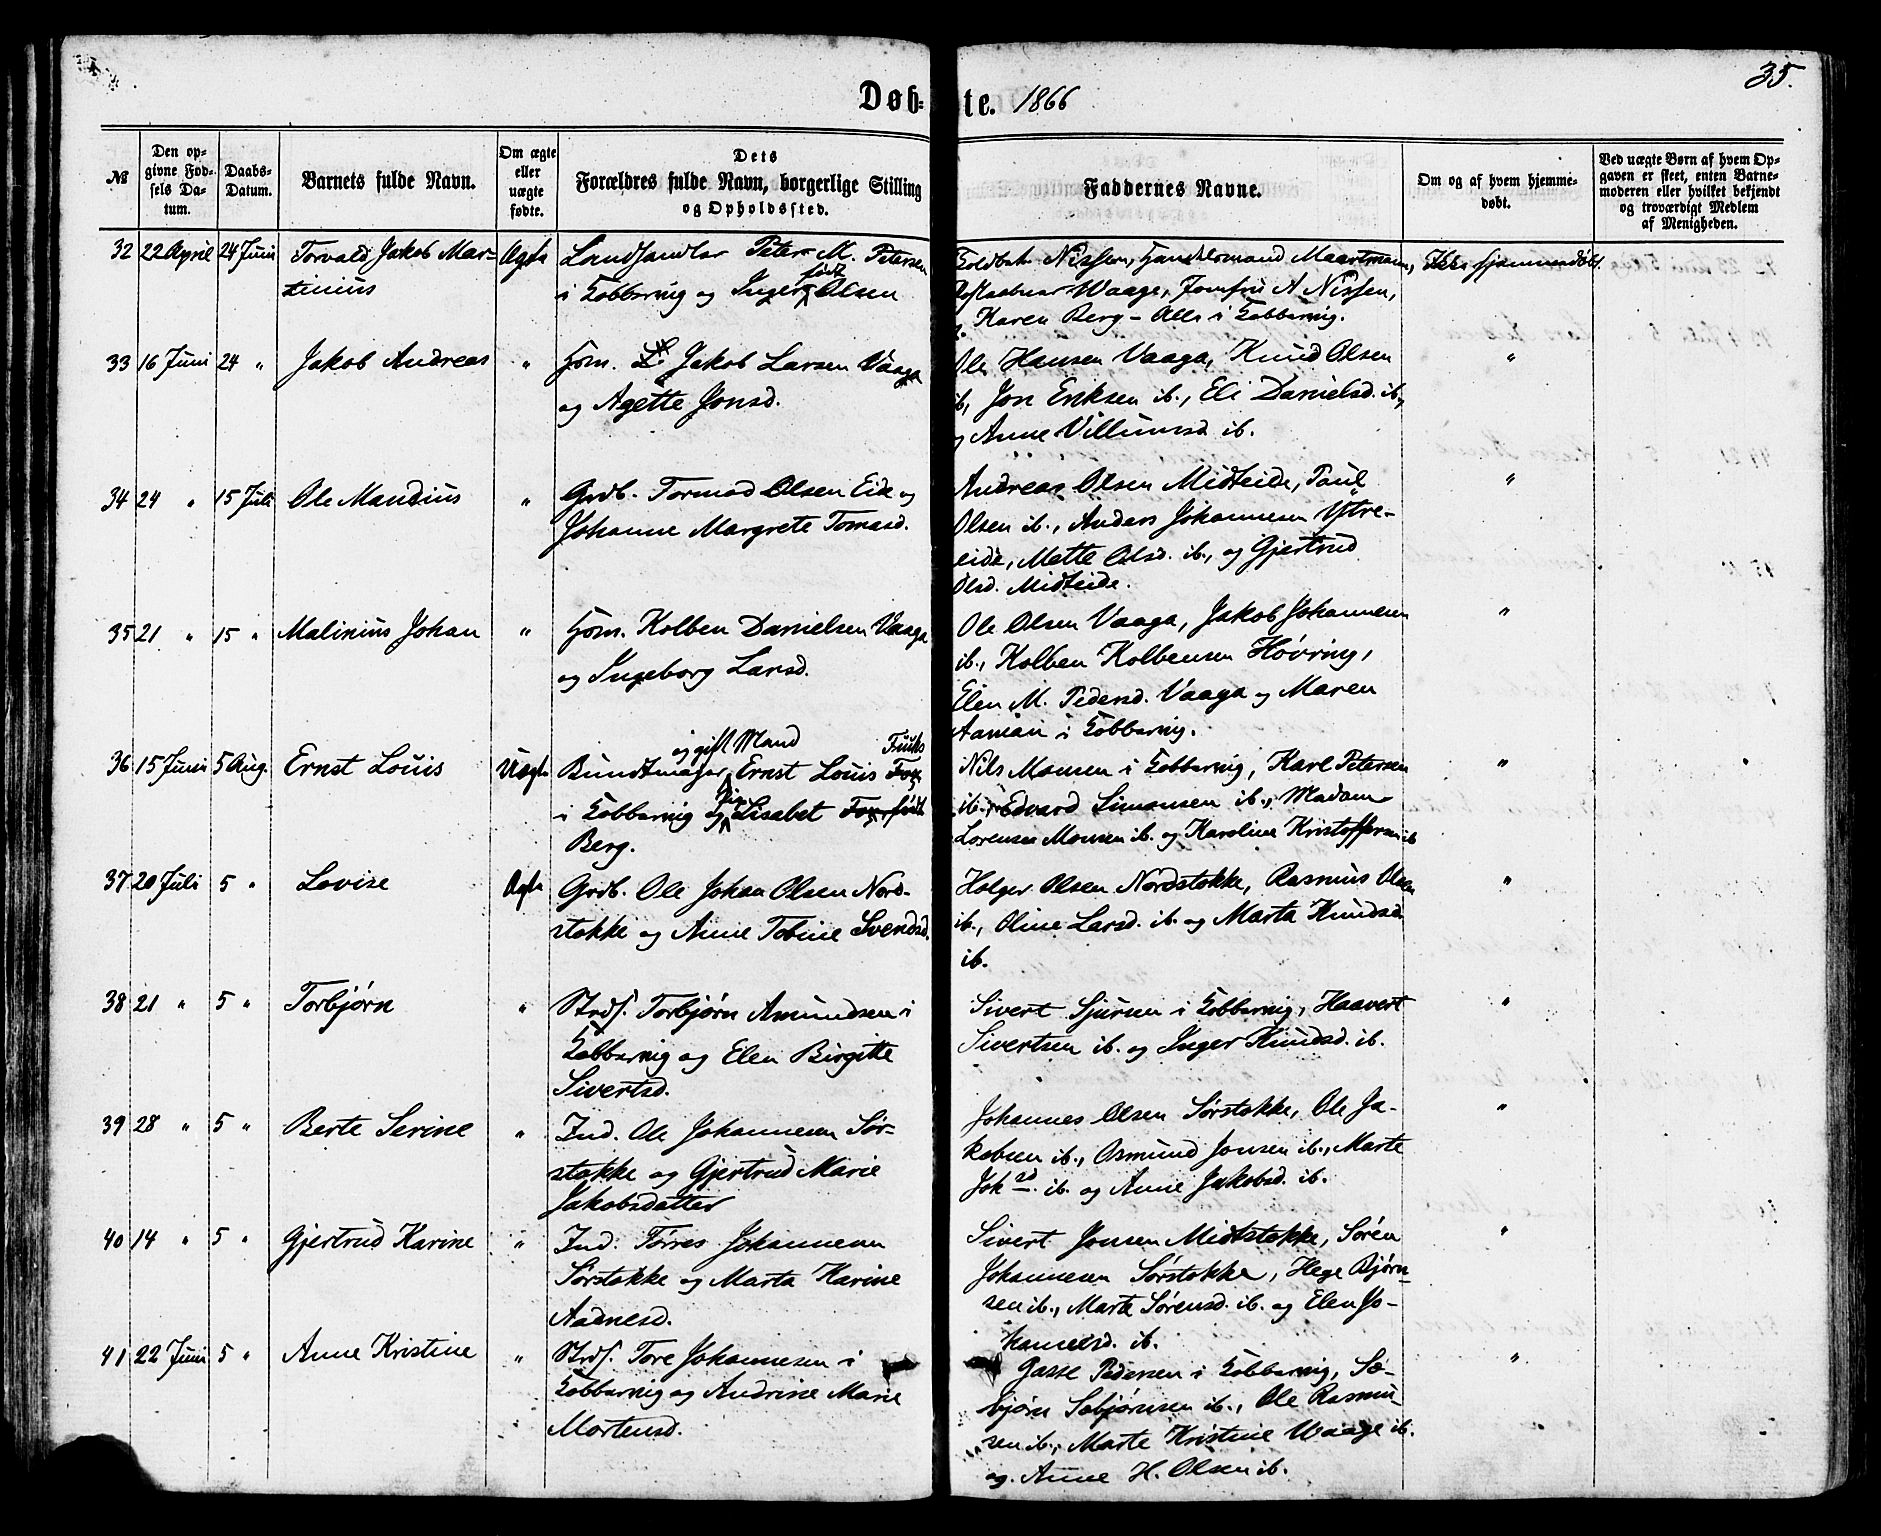 35.
Døb-te. 1866
№
Den op-
givne Fød-
sels Da-
tum.
Daabs-
Datum.
Barnets fulde Navn.
Om ægte
eller
uægte
fødte.
Dets
Forældres fulde Navn, borgerlige Stilling
og Opholdssted.
Faddernes Navne.
Om og af hvem hjemme-
døbt.
Ved uægte Børn af hvem Op-
gaven er skeet, enten Barne-
moderen eller hvilket bekjendt
og troværdigt Medlem
af Menigheden.
32 22 April 24 Juni Torvald Jakob Mar-
tinius
Ægte
Landhandler Peter M. Petersen
i Kobbervig og Inger født Olsen
Nissen, Handelsmand Maartmann,
Waage, Jomfru A Nissen,
Karen Berg – Alle i Kobbervig.
Ikke hjemmedøbt.
33 16 Juni 24 " Jakob Andreas "
Hsm. Jakob Larsen Vaaga
og Agette Jonsd.
Ole Hansen Vaaga, Knud Olsen
ib., Jon Eriksen ib., Eli Danielsd. ib.,
og Anne Villumsd ib.
"
34 24 " 15 Juli Ole Mandius "
Grdb. Tormod Olsen Eide og
Johanne Margrete Tomasd.
Andreas Olsen Midteide, Paul
Olsen ib., Anders Johannesen Ytre-
eide, Mette Olsd. ib., og Gjertrud
Olsd. Midteide.
"
35 21 " 15 " Malinius Johan "
Hsm. Kolben Danielsen Vaaga
og Ingeborg Larsd.
Ole Olsen Vaaga, Jakob Johannesen
ib., Kolben Kolbensen Høvring,
Elen M. Pedersd. Vaaga og Maren
i Kobbervig.
"
36 15 Juni 5 Aug. Ernst Louis Uægte
Bundtmager, og gift Mand Ernst Louis Fox Funks
i Kobbervig og Lisabet Fox, født
Berg.
Nils Monsen i Kobbervig, Karl Petersen
ib., Edvard Simonsen ib., Madam
Lorense Monsen ib. og Karoline Kristoffersen ib
"
37 20 Juli 5 " Lovise Ægte
Grdb. Ole Johan Olsen Nord-
stokke og Anne Tobine Svendsd.
Holger Olsen Nordstokke, Rasmus Olsen
ib., Oline Larsd. ib. og Marta Knudsd.
ib.
"
38 21 " 5 " Torbjørn "
Strds. Torbjørn Amundsen i
Kobbervig og Elen Birgitte
Sivertsd.
Sivert Sjursen i Kobbervig, Haavert
Sivertsen ib. og Inger Knudsd. ib.
"
39 28 " 5 " Berte Serine "
Ind. Ole Johannesen Sør-
stokke og Gjertrud Marie
Jakobsdatter
Johannes Olsen Sørstokke, Ole Ja-
kobsen ib., Osmund Jonsen ib., Marte
Joh sd. ib. og Anne Jakobsd. ib.
"
40 14 " 5 " Gjertrud Karine "
Ind. Torres Johannesen
Sørstokke og Marta Karine
Aadnesd.
Sivert Jonsen Midtstokke, Søren
Johannesen Sørstokke, Hege Bjørn-
sen ib., Marte Sørensd. ib. og Elen Jo-
hannesd. ib.
"
41 22 Juni 5 " Anne Kristine "
Strds. Tore Johannesen i
Kobbervig og Andrine Marie
Mortensd.
Gasse Pedersen i Kobbervig, Sæ-
bjørn Sæbjørnsen ib., Ole Rasmu-
sen ib., Marte Kristine Waage ib.
og Anne H. Olsen ib.
"